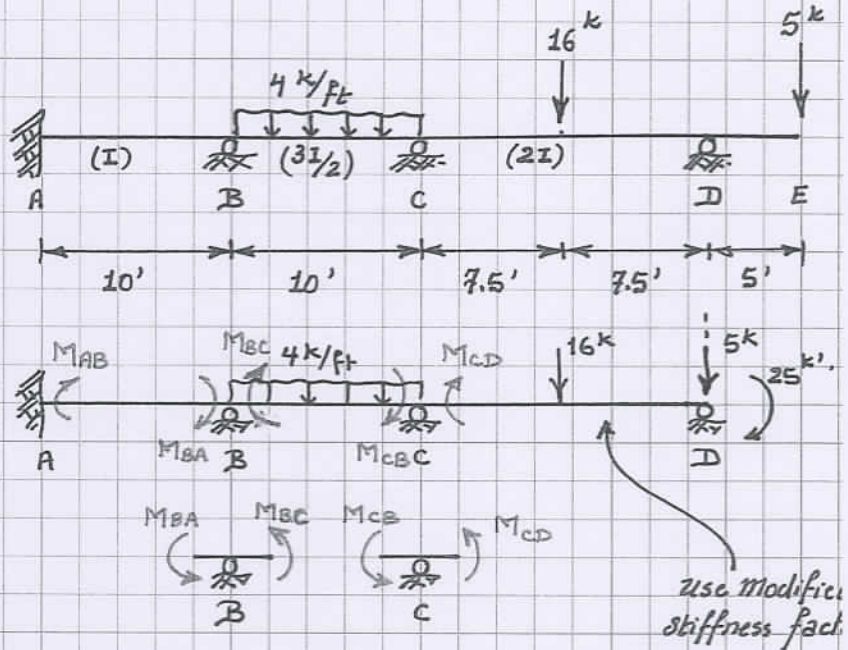 16 k
5 k
4 k/ft
(I)
(3I/2)
(2I)
A B C D E
10' 10' 7.5' 7.5' 5'
MAB MBC 4k/ft MCD 16k 5k 25k'.
A MBA B MCB C D
MBA MBC MCB MCD
B C
use modifie
stiffness fact